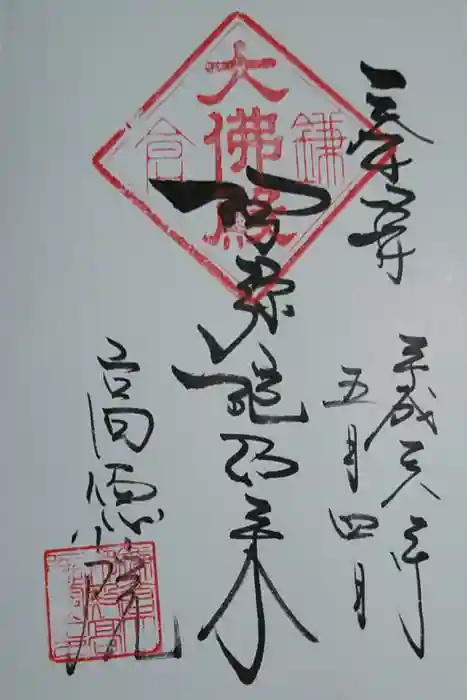 奉拝
平成
年
五月四日
鎌
大佛殿
倉
阿弥陀如来
高徳院